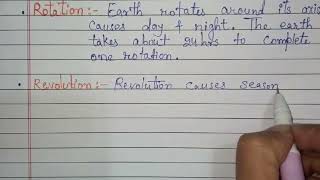 • Rotation:- Earth rotates around its axis
causes day & night. The earth
takes about 24hrs to complete
one rotation.
• Revolution:- Revolution causes season